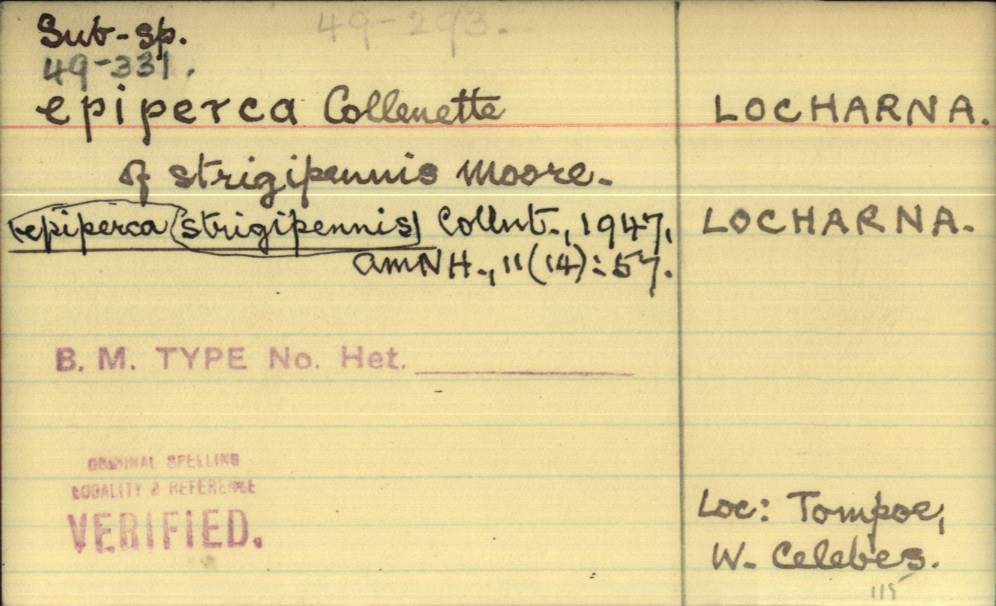 Sub-sp. 49-293.
49-331.
epiperca Collenette LOCHARNA.
of strigipennis Moore.
epiperca (strigipennis) Collnt., 1947, LOCHARNA.
AmNH., 11(14): 57.
B. M. TYPE No. Het.
ORIGINAL SPELLING
LOCALITY & REFERENCE
VERIFIED.
Loc: Tompoe,
W. Celebes.
115